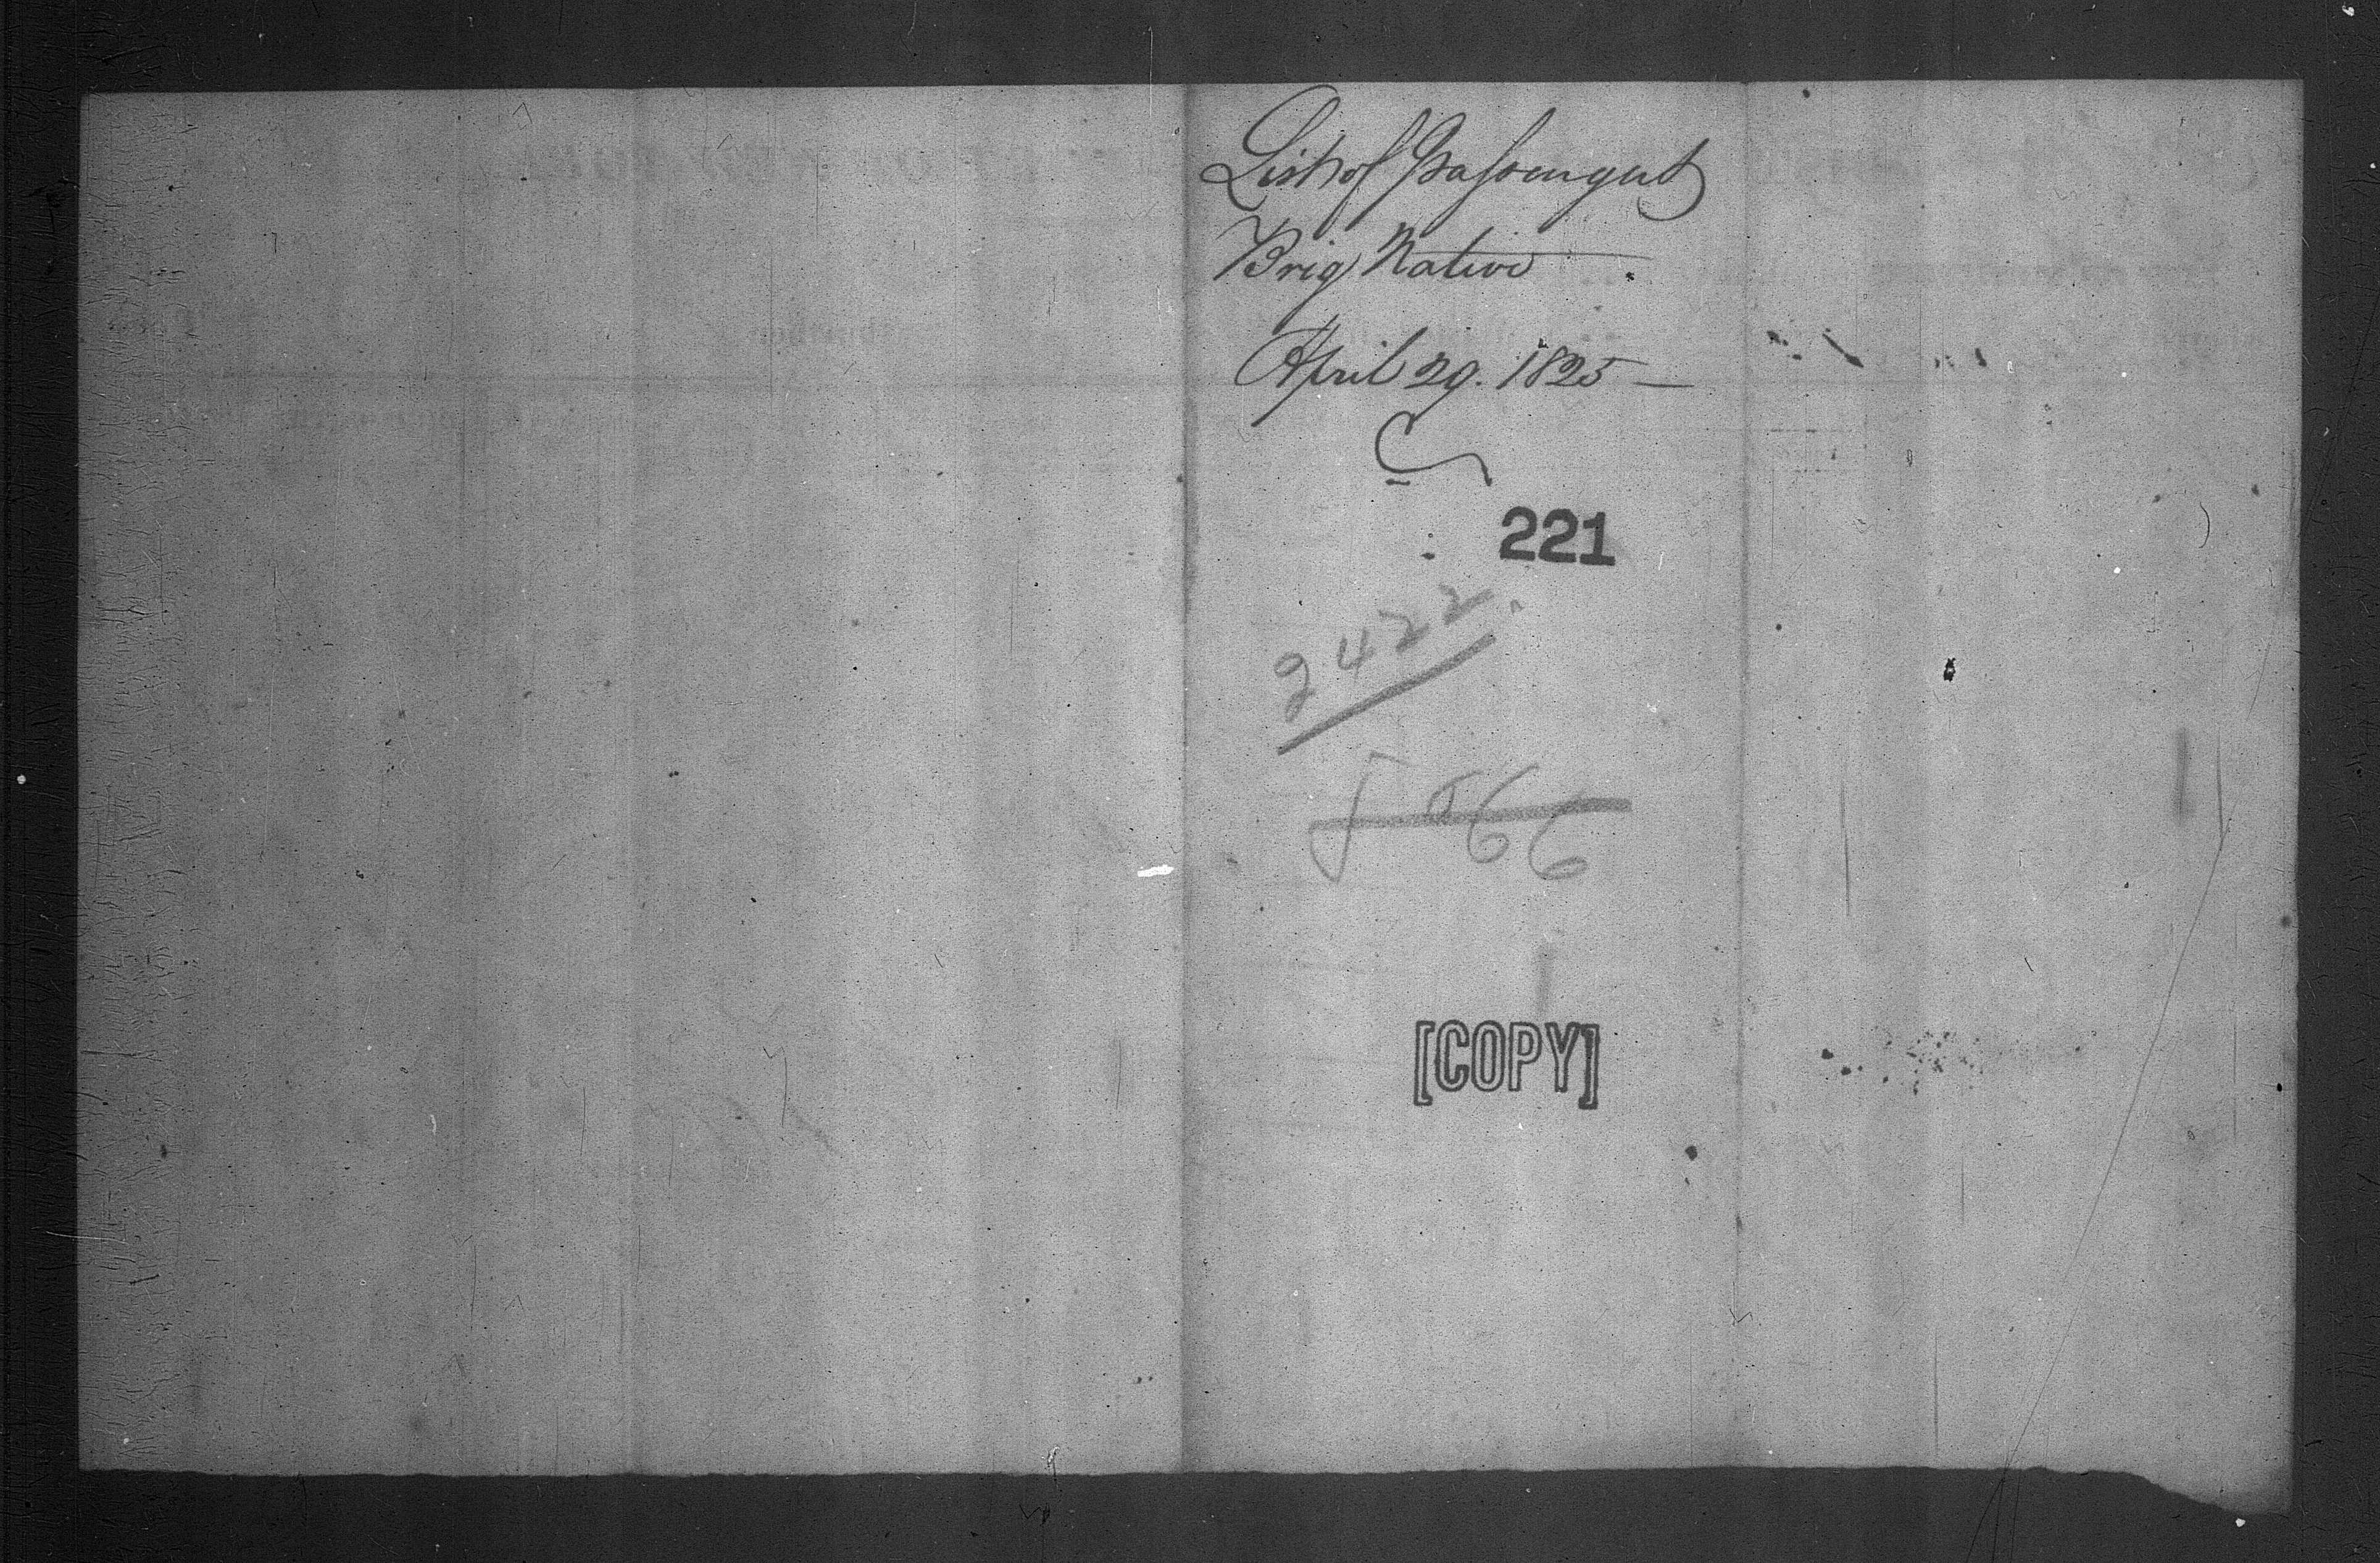 List of Passengers
Brig Native
April 29. 1825 —
221
2422.
566
[COPY]